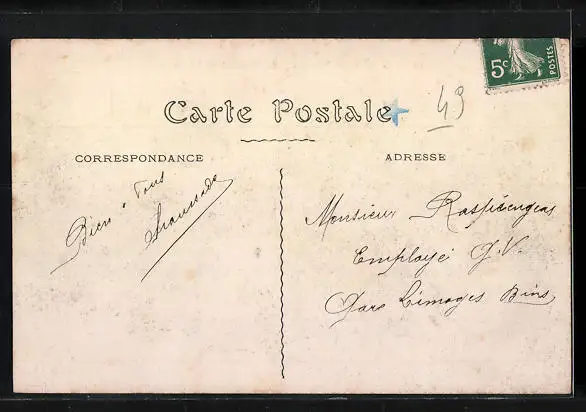 5c
POSTES
49
Carte Postale
CORRESPONDANCE
ADRESSE
Bien à Tous
Monsieur
Employé G.V.
Gare Limoges Bins